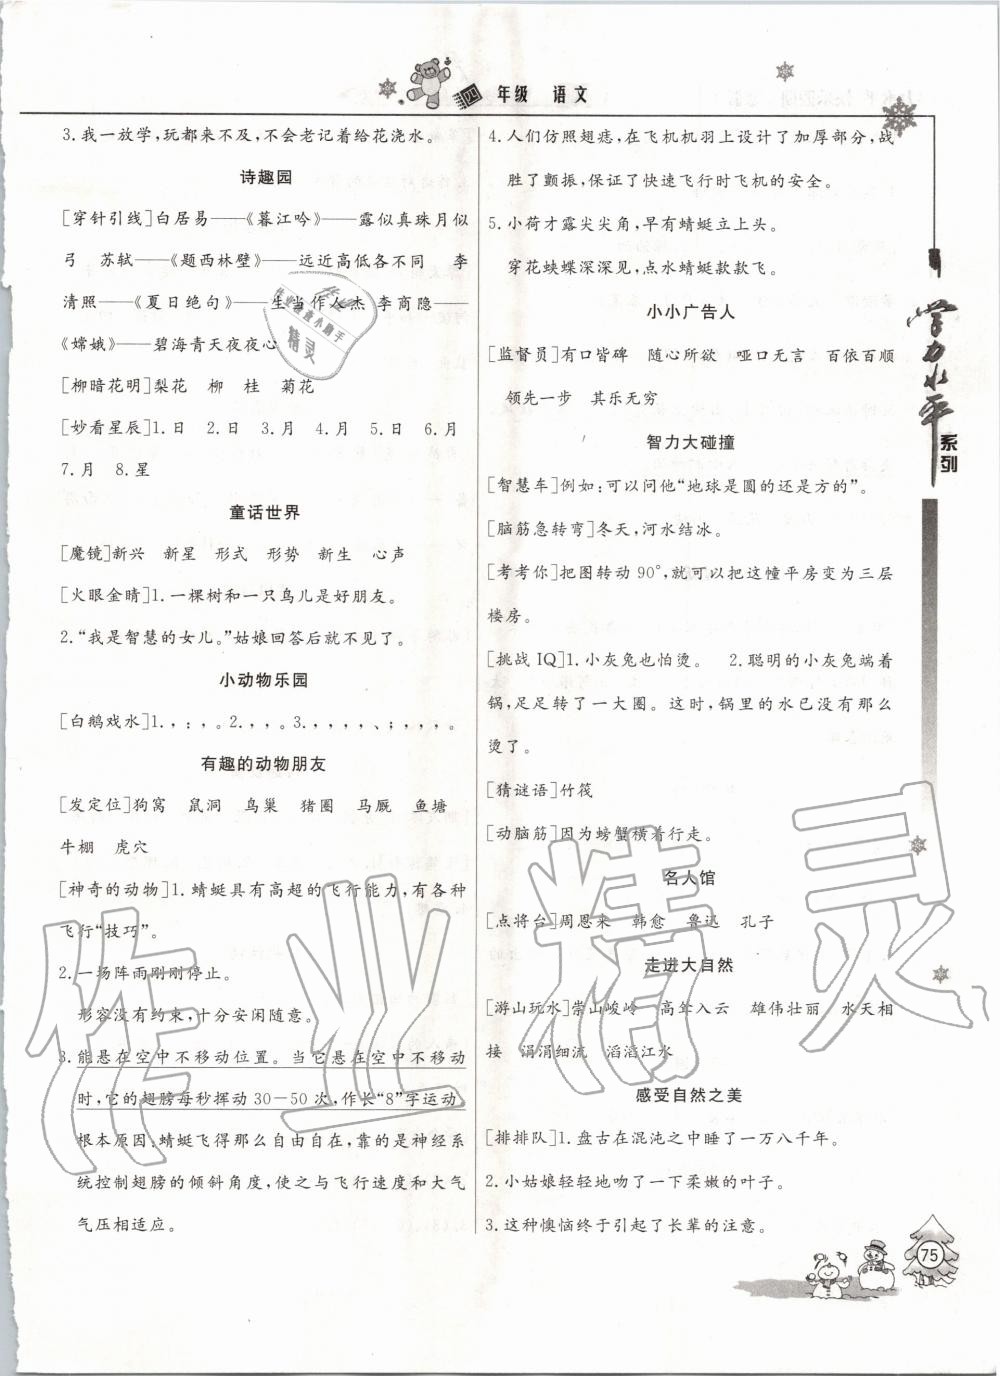 四年级 语文
3.我一放学,玩都来不及,不会老记着给花浇水。
诗趣园
[穿针引线]白居易——《暮江吟》——露似真珠月似
弓 苏轼——《题西林壁》——远近高低各不同 李
清照——《夏日绝句》——生当作人杰 李商隐——
《嫦娥》——碧海青天夜夜心
[柳暗花明]梨花 柳 桂 菊花
[妙看星辰]1.日 2.日 3.月 4.月 5.日 6.月
7.月 8.星
童话世界
[魔镜]新兴 新星 形式 形势 新生 心声
[火眼金睛]1.一棵树和一只鸟儿是好朋友。
2.“我是智慧的女儿。”姑娘回答后就不见了。
小动物乐园
[白鹅戏水]1.,;,。2.,,。3.,,,,、;,,,。
有趣的动物朋友
[发定位]狗窝 鼠洞 鸟巢 猪圈 马厩 鱼塘
牛棚 虎穴
[神奇的动物]1.蜻蜓具有高超的飞行能力,有各种
飞行“技巧”。
2.一场阵雨刚刚停止。
形容没有约束,十分安闲随意。
3.能悬在空中不移动位置。当它悬在空中不移动
时,它的翅膀每秒挥动30—50次,作长“8”字运动
根本原因,蜻蜓飞得那么自由自在,靠的是神经系
统控制翅膀的倾斜角度,使之与飞行速度和大气
气压相适应。
4.人们仿照翅痣,在飞机机羽上设计了加厚部分,战
胜了颤振,保证了快速飞行时飞机的安全。
5.小荷才露尖尖角,早有蜻蜓立上头。
穿花蛱蝶深深见,点水蜻蜓款款飞。
小小广告人
[监督员]有口皆碑 随心所欲 哑口无言 百依百顺
领先一步 其乐无穷
智力大碰撞
[智慧车]例如:可以问他“地球是圆的还是方的”。
[脑筋急转弯]冬天,河水结冰。
[考考你]把图转动90°,就可以把这幢平房变为三层
楼房。
[挑战IQ]1.小灰兔也怕烫。 2.聪明的小灰兔端着
锅,足足转了一大圈。这时,锅里的水已没有那么
烫了。
[猜谜语]竹筏
[动脑筋]因为螃蟹横着行走。
名人馆
[点将台]周恩来 韩愈 鲁迅 孔子
走进大自然
[游山玩水]崇山峻岭 高耸入云 雄伟壮丽 水天相
接 涓涓细流 滔滔江水
感受自然之美
[排排队]1.盘古在混沌之中睡了一万八千年。
2.小姑娘轻轻地吻了柔嫩的叶子。
3.这种懊恼终于引起了长辈的注意。
学力水平
系列
75
作业检查小助手
精灵
作业精灵